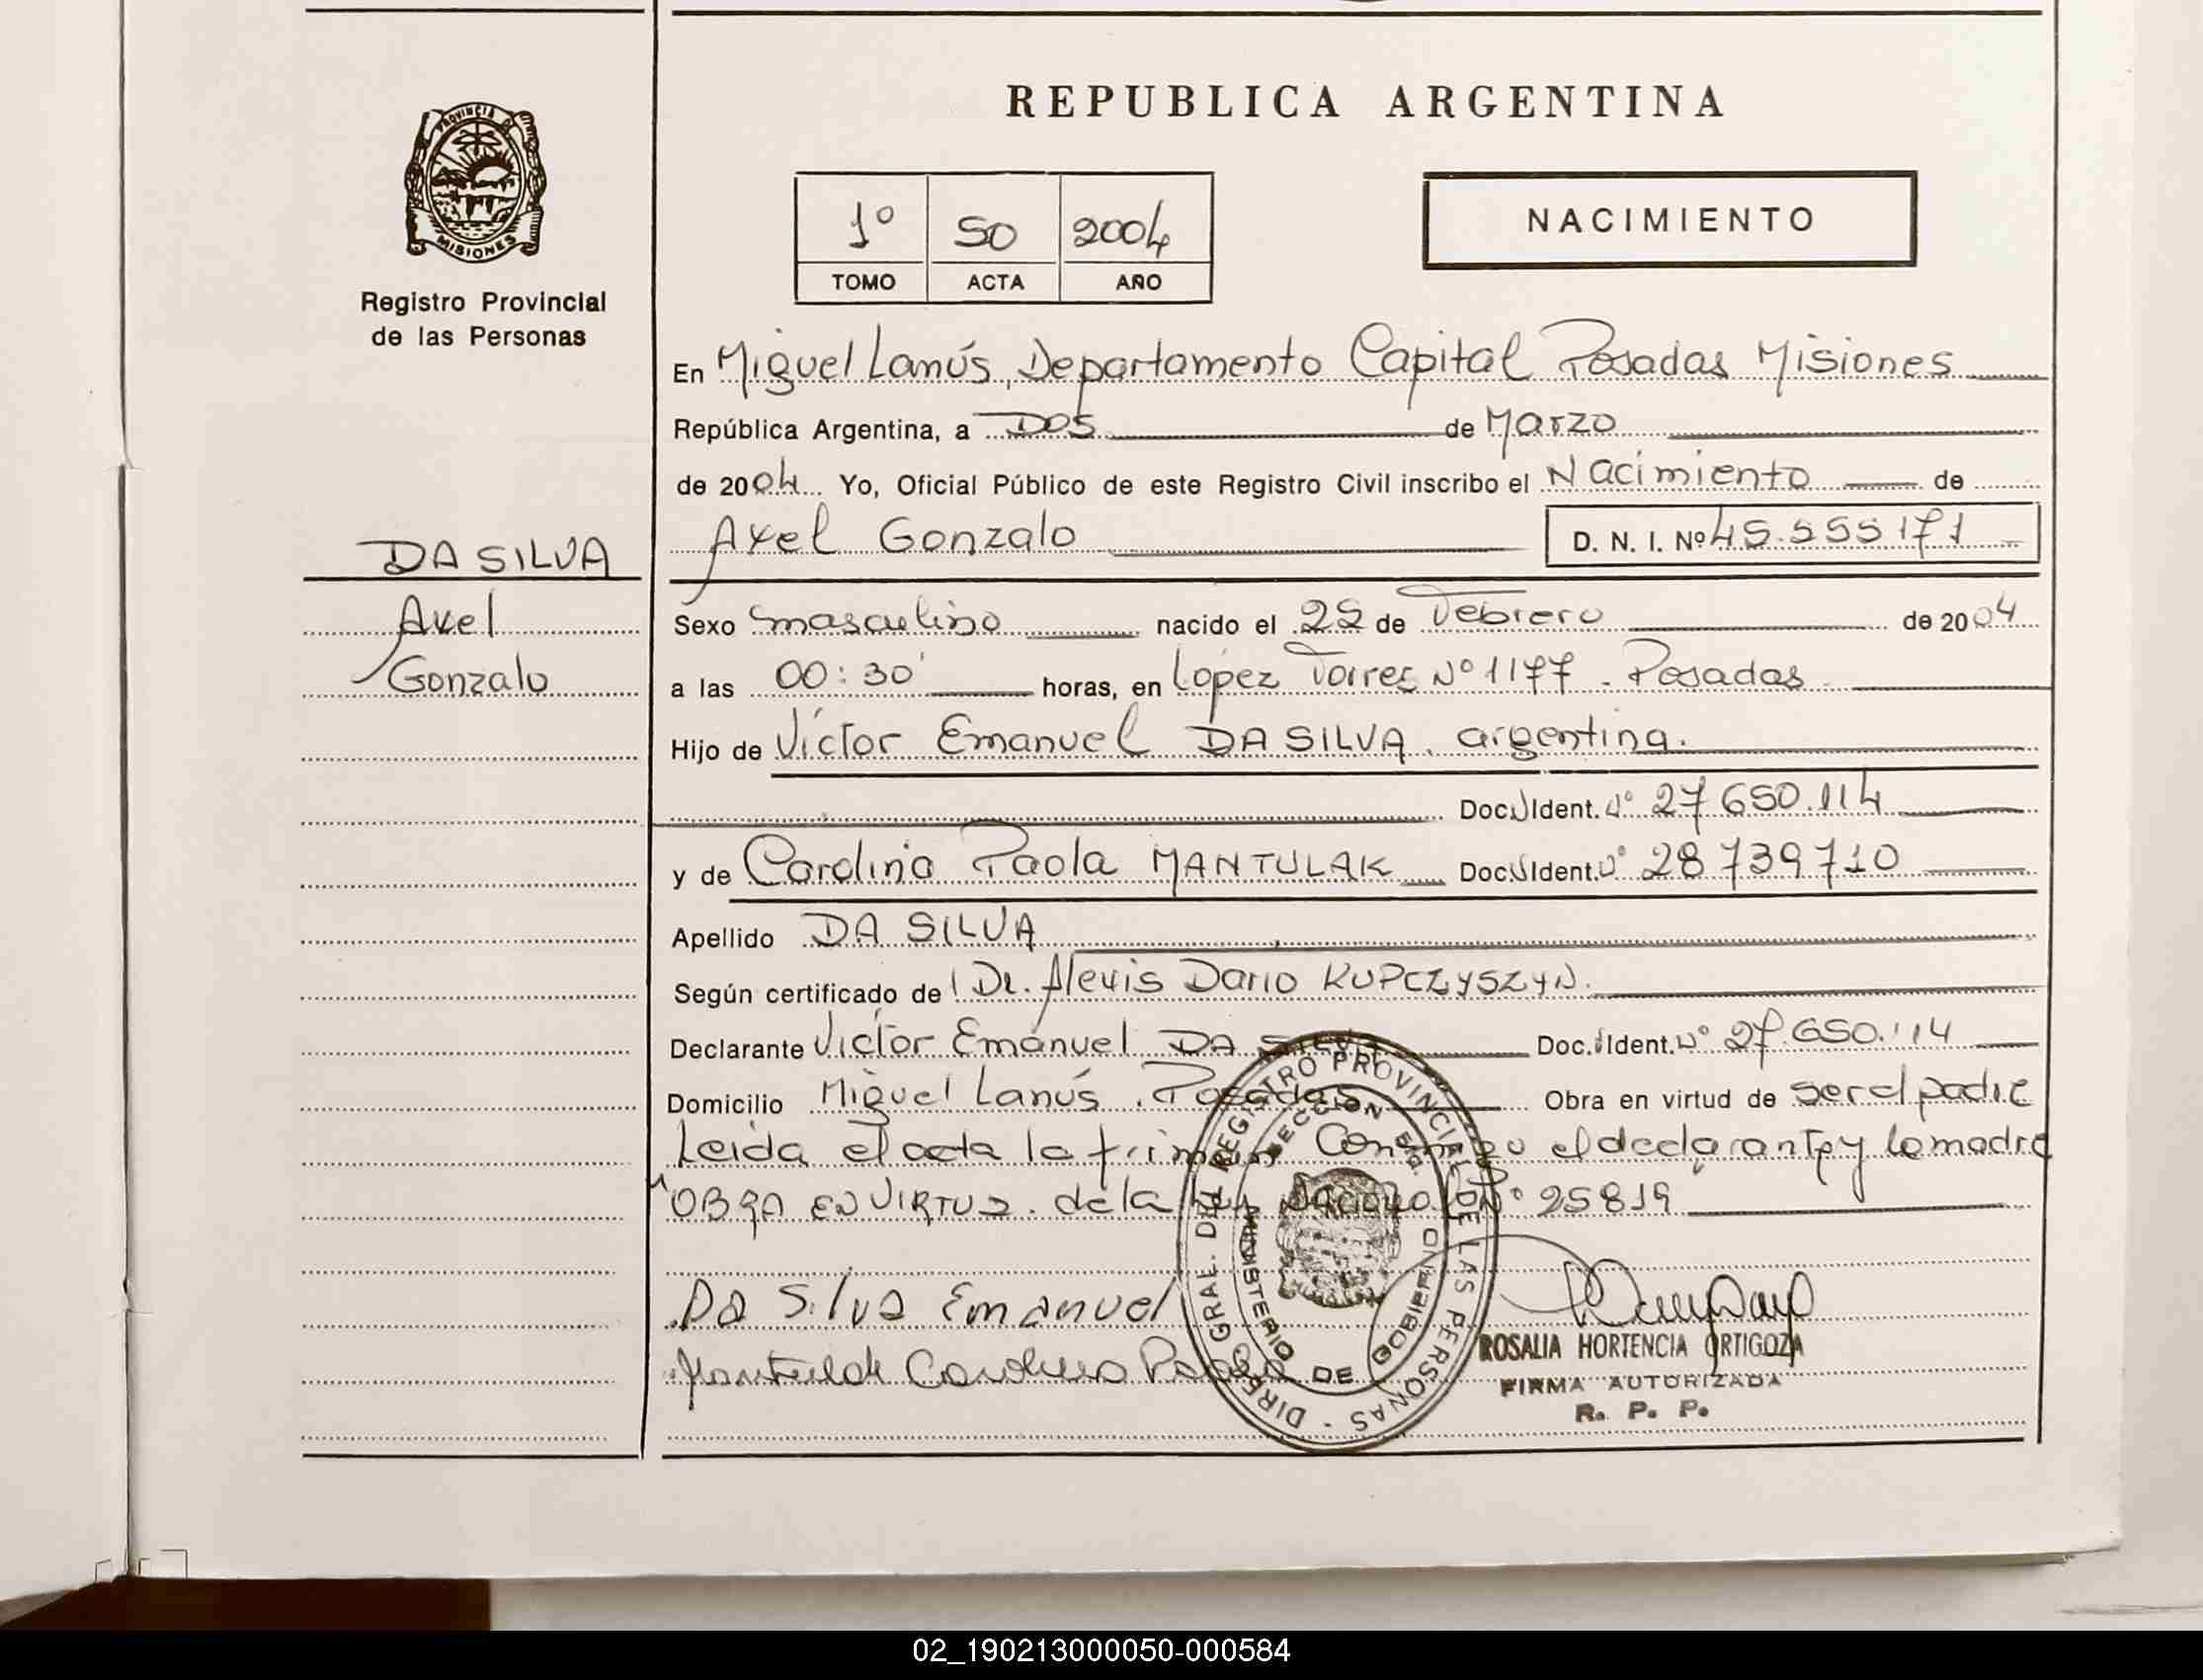 PROVINCIA DE
MISIONES
Registro Provincial
de las Personas
DA SILVA
Axel
Gonzalo
REPUBLICA ARGENTINA
1º 50 2004
TOMO ACTA AÑO
NACIMIENTO
En Miguel Lanús, Departamento Capital Posadas Misiones
República Argentina, a DOS de Marzo
de 2004 Yo, Oficial Público de este Registro Civil inscribo el Nacimiento de
Axel Gonzalo D. N. I. Nº 45.555171
Sexo masculino nacido el 25 de Febrero de 2004
a las 00:30' horas, en Lopez Torres Nº 1177 - Posadas
Hijo de Víctor Emanuel DA SILVA. argentina.
Doc. Ident. Nº 27650.114
y de Carolina Paola MANTULAK Doc. Ident. Nº 28739710
Apellido DA SILVA
Según certificado de Dr. Alexis Dario KUPCZYSZYN.
Declarante Victor Emanuel DA SILVA Doc. Ident. Nº 27.650.114
Domicilio Miguel Lanús. Posadas Obra en virtud de ser el padre
Leida el acta la firman Conmigo el declarante y la madre
OBRA EN VIRTUD. de la Ley Nacional Nº 25819
Da Silva Emanuel
Mantulak Carolina Paola
DIRECCION GRAL. DEL REGISTRO PROVINCIAL DE LAS PERSONAS
MINISTERIO DE GOBIERNO
ROSALIA HORTENCIA ORTIGOZA
FIRMA AUTORIZADA
R. P. P.
02_190213000050-000584